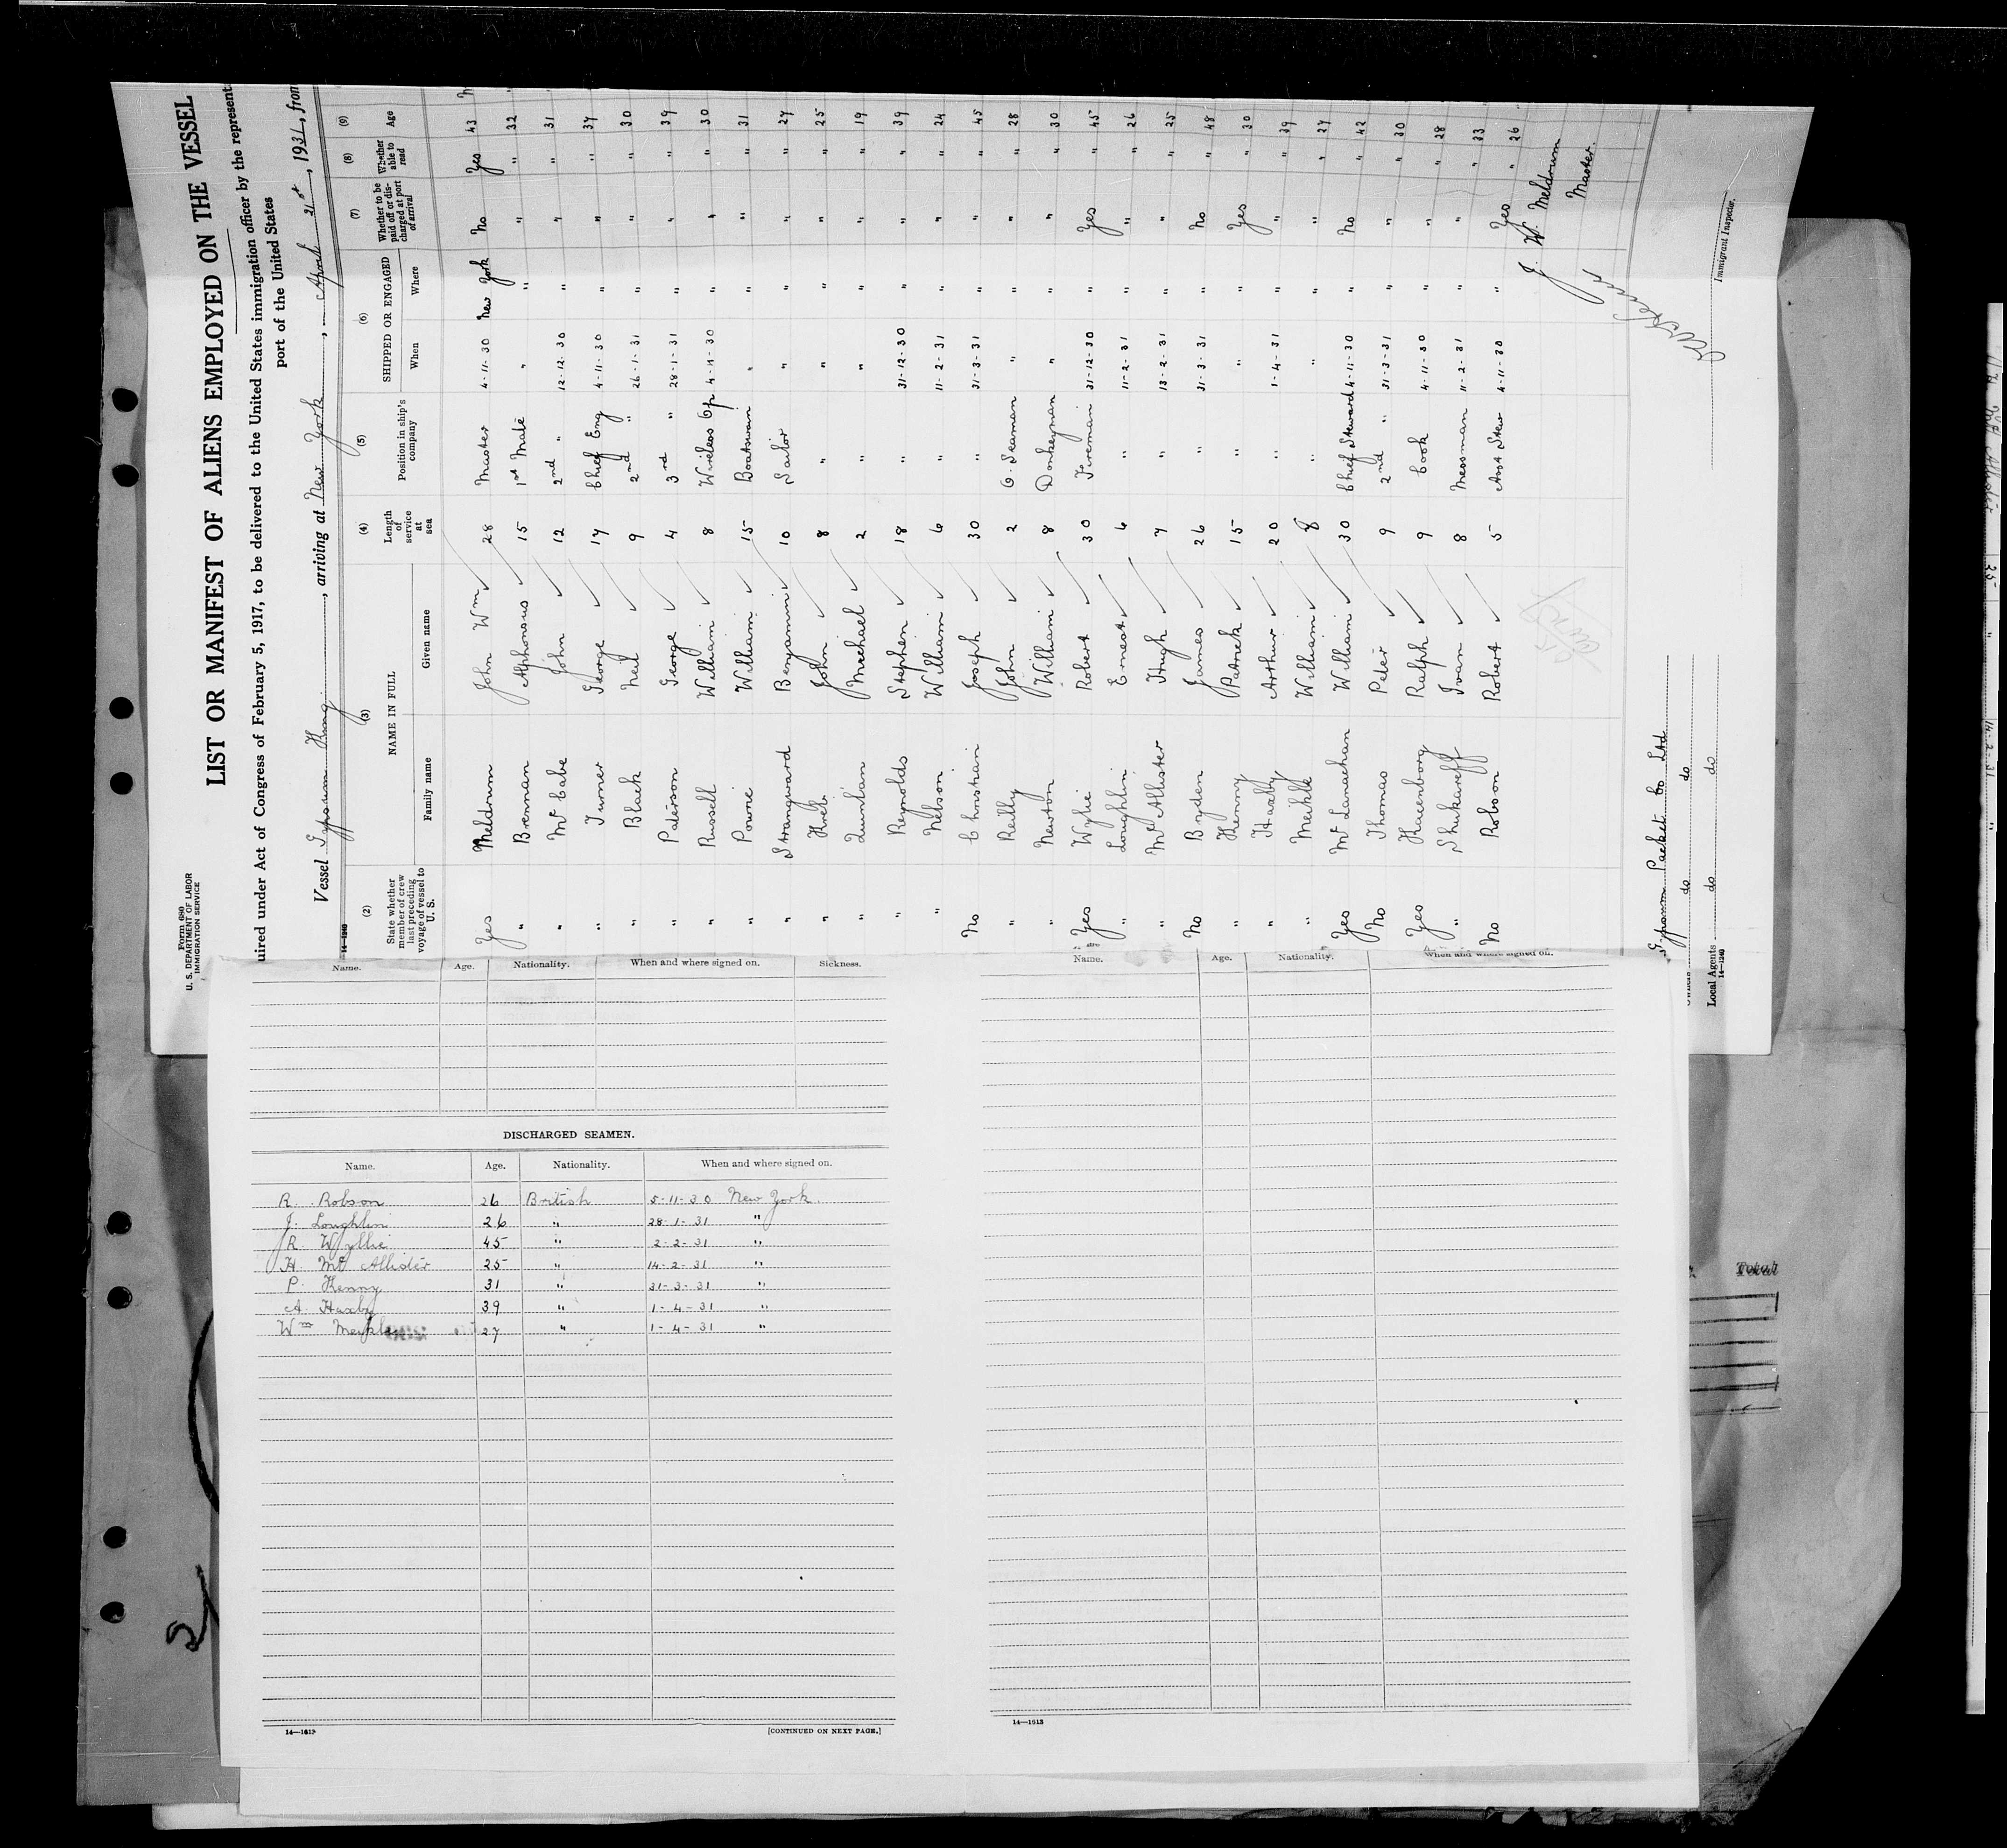 Form 680
U. S. DEPARTMENT OF LABOR
IMMIGRATION SERVICE
LIST OR MANIFEST OF ALIENS EMPLOYED ON THE VESSEL
uired under Act of Congress of February 5, 1917, to be delivered to the United States immigration officer by the represent
port of the United States
Vessel Gypsum King, arriving at New York, April 21st, 1931, from
14—1240
(2) (3) (4) (5) (6) (7) (8) (9)
State whether member of crew last preceding voyage of vessel to U. S. NAME IN FULL Family name Given name Length of service at sea Position in ship's company SHIPPED OR ENGAGED When Where Whether to be paid off or discharged at port of arrival Whether able to read Age
Yes Meldrum John Wm 28 Master 4-11-30 New York No Yes 43
" Brennan Alphonsus 15 1st Mate " " " " 32
" McCabe John 12 2nd " 12-12-30 " " " 31
" Turner George 17 Chief Eng 4-11-30 " " " 37
" Black Neil 9 2nd " 26-1-31 " " " 30
" Paterson George 4 3rd " 28-1-31 " " " 39
" Russell William 8 Wireless Op 4-11-30 " " " 30
" Powrie William 15 Boatswain " " " " 31
" Strangward Benjamin 10 Sailor " " " " 27
" John 8 " " " " " 25
" Quinlan Michael 2 " " " " " 19
" Reynolds Stephen 18 " 31-12-30 " " " 39
" Nelson William 6 " 11-2-31 " " " 24
No Christian Joseph 30 " 31-3-31 " " " 45
" Reilly John 2 O. Seaman " " " " 28
" Newton William 8 Donkeyman " " " " 30
Yes Wylie Robert 30 Fireman 31-12-30 " Yes " 45
" Loughlin Ernest 6 " 11-2-31 " " " 26
" McAllister Hugh 7 " 13-2-31 " " " 25
No Byden James 26 " 31-3-31 " No " 48
" Kenny Patrick 15 " " " Yes " 30
" Haxby Arthur 20 " 1-4-31 " " " 39
" Meikle William 8 " " " " " 27
Yes McLanachan William 30 Chief Steward 4-11-30 " No " 42
No Thomas Peter 9 2nd " 31-3-31 " " " 30
Yes Hauenborg Ralph 9 Cook 4-11-30 " " " 28
" Shukareff Ivan 8 Messman 11-2-31 " " " 33
No Robson Robert 5 Asst Stew 4-11-30 " Yes " 26
J. W. Meldrum
Master.
Immigrant Inspector.
Gypsum Packet Co Ltd
do do
Local Agents do do
14—1240
Name. Age. Nationality. When and where signed on. Sickness.
DISCHARGED SEAMEN.
Name. Age. Nationality. When and where signed on.
R. Robson 26 British 5-11-30 New York.
J. Loughlin 26 " 28-1-31 "
R. Wyllie 45 " 2-2-31 "
H. McAllister 25 " 14-2-31 "
P. Kenny 31 " 31-3-31 "
A. Haxby 39 " 1-4-31 "
Wm Meykle 27 " 1-4-31 "
14—1613
[CONTINUED ON NEXT PAGE.]
Name. Age. Nationality. When and where signed on.
14—1613
Total